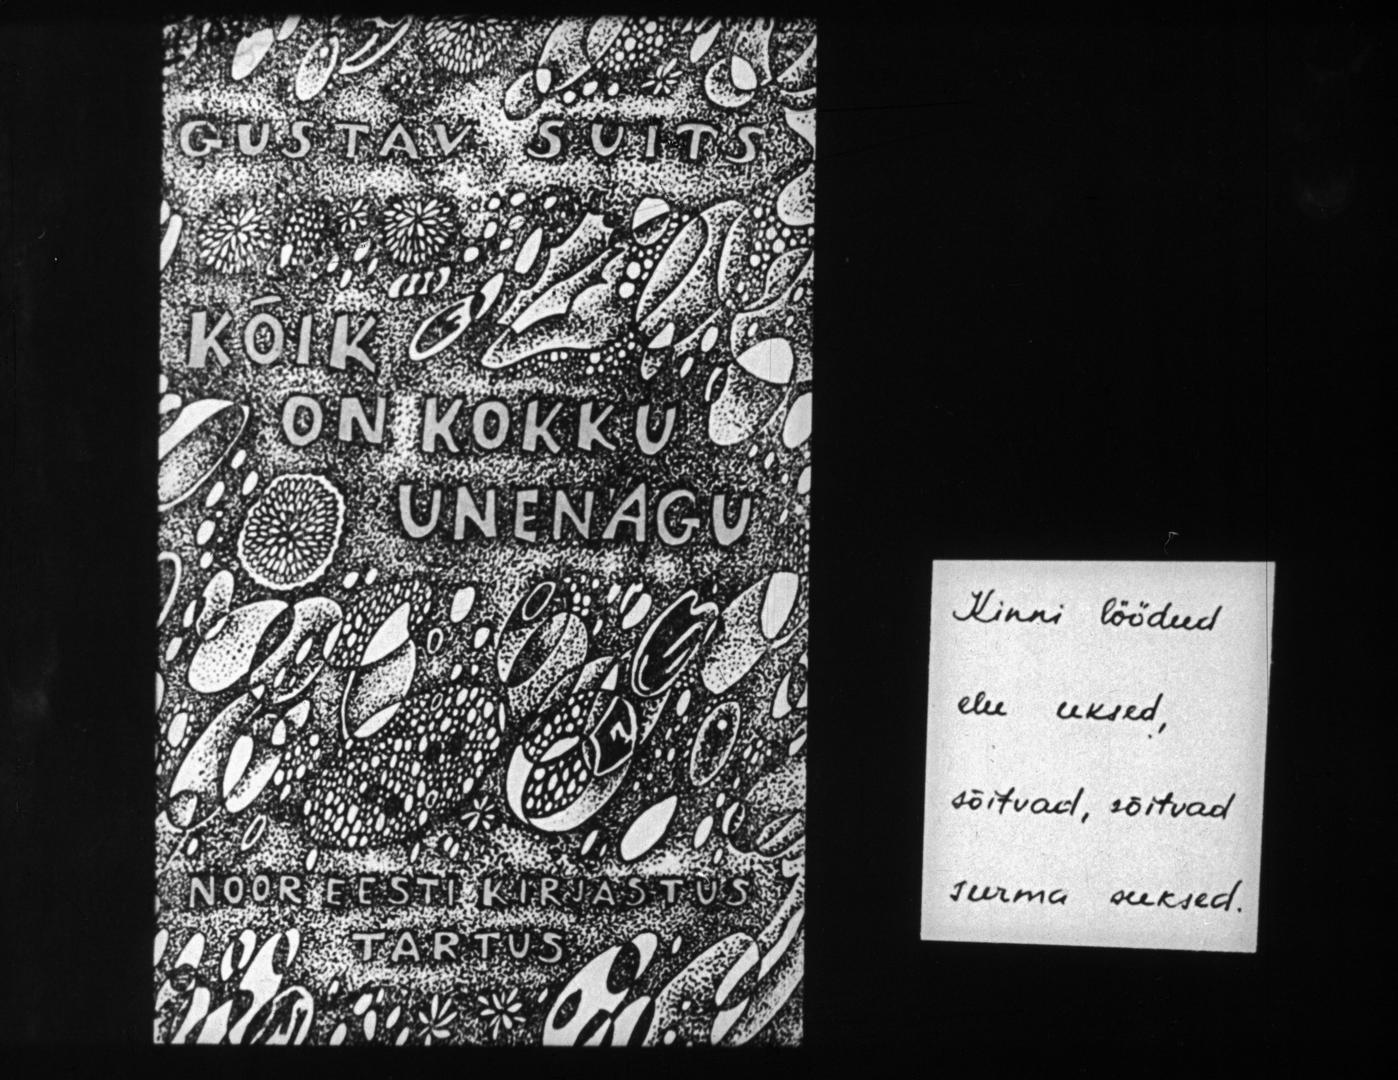 GUSTAV SUITS
KÕIK
ON KOKKU
UNENÄGU
NOOR EESTI KIRJASTUS
TARTUS
Kinni löödud
elu uksed,
sõitvad, sõitvad
surma suksed.